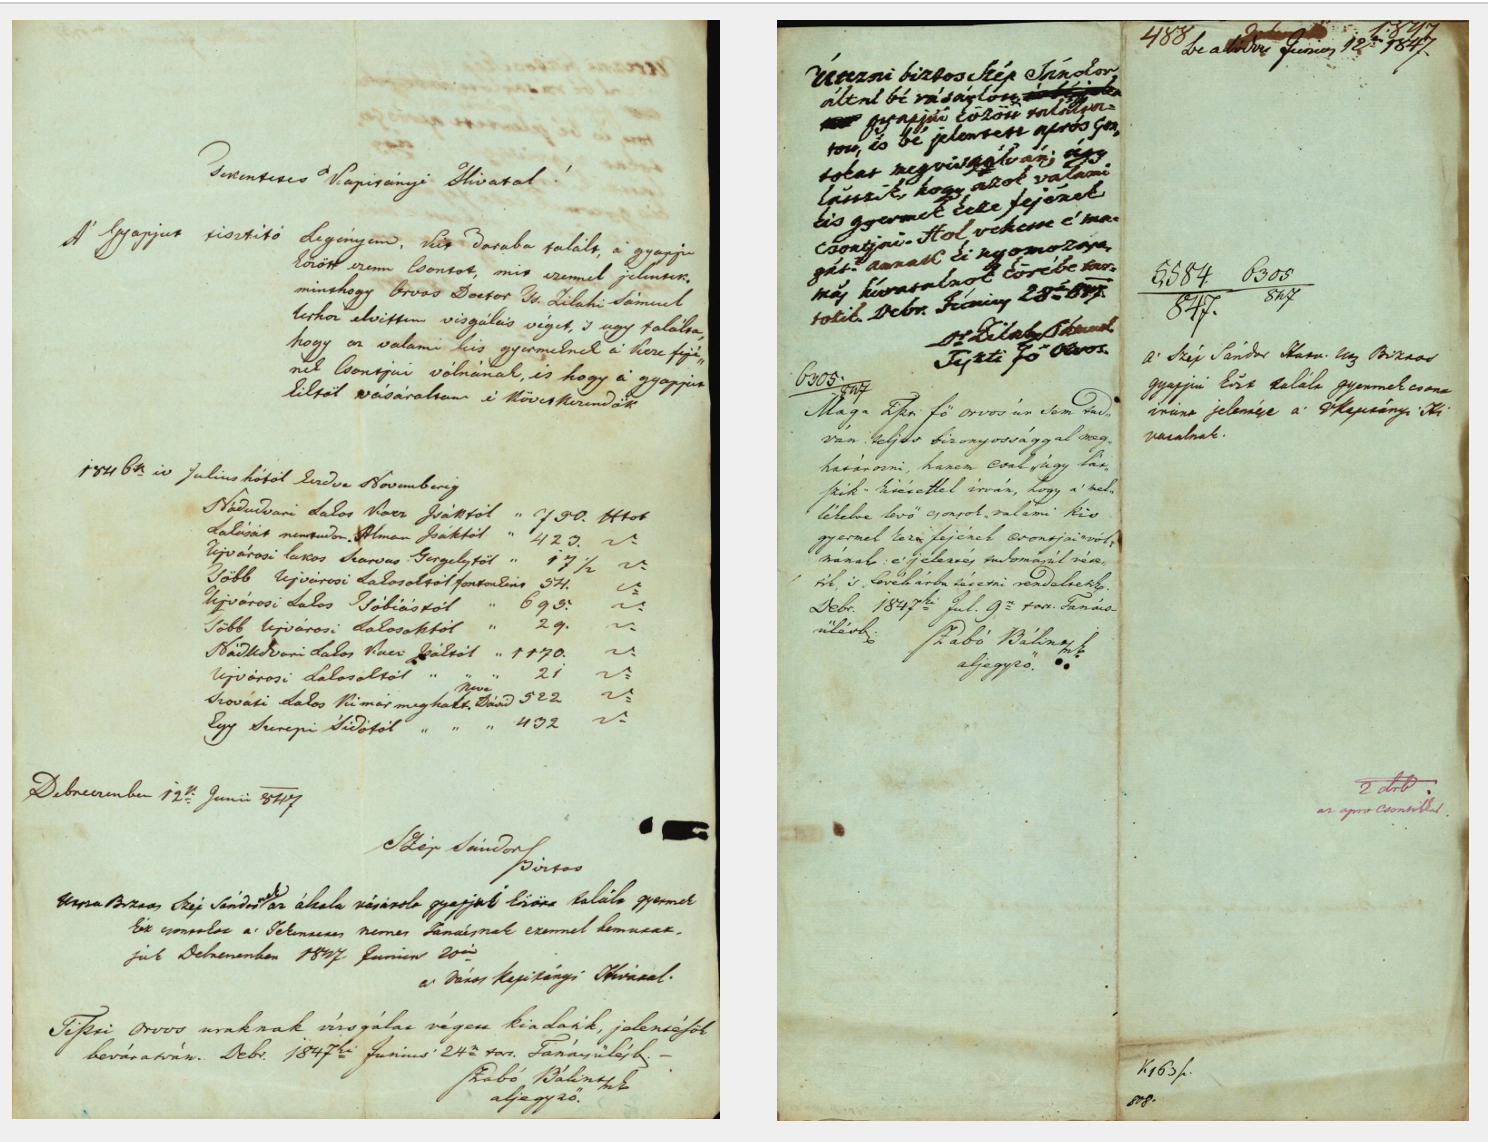 Tekentetes Kapitányi Hivatal!
A' Gyapjut tisztitó Legényem, két daraba talált, a gyapju
között ezenn Csontot, mit ezennel jelentek.
minthogy Orvos Doctor Ur. Zilahi Sámuel
Urhoz elvittem visgálás véget, s ugy találta,
hogy az valami kis gyermeknek a Keze fejé„
nek Csontjai vólnának, és hogy á gyapjut
kiktöl vásároltam é következendök
1846ik év Julius hótól kezdve Novemberig
Nádudvari Lakos Kacz Isáktól „ 750. ttot
Lakását nemtudom Alman Isáktól „ 423.
Ujvárosi lakos Szarvas Gergelytöl „ 17 1/2
Több Ujvárosi Lakosoktól fontonként 54.
Ujvárosi Lakos Tóbiástól „ 695.
Több Ujvárosi Lakosoktól „ 29.
Nádudvari Lakos Kacz Isáktól „ 1170.
Ujvárosi Lakosoktól „ „ „ 21
Szováti Lakos Ki már meghalt Neve Dávid 522
Egy Szerepi Sidótól „ „ „ 432
Debreczenben 12n Junii 847
Szép Sándor
Biztos
Biztos Szép Sándor az általa vásárolt gyapjuk között talált gyermek
kéz csontokat a' Tekintetes nemes Tanácsnak ezennel bemutat„
juk Debreczenben 1847 Junius 20án
a' Város Kapitányi Hivatal.
Tiszti orvos uraknak vizsgálat végett kiadatik, jelentésöket
bevárván. Debr. 1847ki Junius' 24n tar. Tanácsülésb. –
Szabó Bálint mk
aljegyző.
Utczai biztos Szép Sándor
által bé vásáron
gyapjúi között találta-
tott, és bé jelentett aprós Con-
tokat megvizgálván, úgy
látszik, hogy azok valami
kis gyermek keze fejének
csontjai. Hol vehesse é ma-
gát annak ki nyomozása
más hivatalnok körébe tar-
tozik. Debr. Június 28n 847.
Dr Zilahy Sámuel
Tiszti fő Orvos.
6305/847
Maga Tiszti fő orvos úr sem tud-
ván teljes bizonyossággal meg-
határozni, hanem csak „úgy lát„
szik” kitétellel írván, hogy a' mel-
lékelve levő csontok valami kis
gyermek keze fejének csontjai vol„
nának: e' jelentés tudomásúl véte-
tik, s levéltárba tétetni rendeltetik.
Debr. 1847ki Jul. 9n tar. Tanács-
ülésb.
Szabó Bálint mk
aljegyző.
488 1847
be adódott Junius 12n 1847.
5584 6305
847. 847
a' Szép Sándor Biztos
gyapjui közt talált gyermek csont
iránt jelentése a' Kapitányi Hi
vatalnak.
2 drb.
az apró csontokkal.